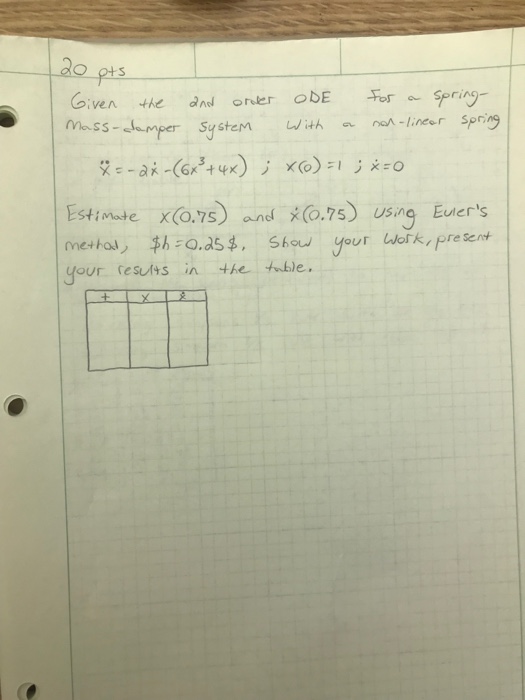 20 pts
Given the 2nd order ODE for a spring-
mass-damper system with a non-linear spring
ẍ = -2ẋ - (6x³ + 4x) ; x(0) = 1 ; ẋ = 0
Estimate x(0.75) and ẋ(0.75) using Euler's
method, $h = 0.25$. Show your work, present
your results in the table.
t x ẋ